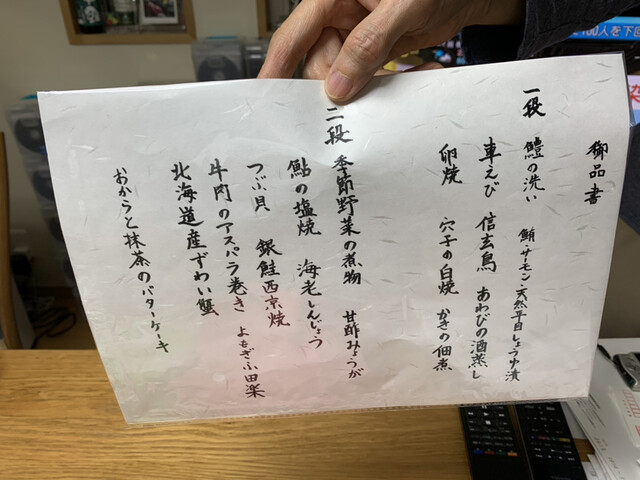 御品書
一段 鱧の洗い 鮪・サーモン・天然平目しょうゆ漬
車えび 信玄鳥 あわびの酒蒸し
卵焼 穴子の白焼 かきの佃煮
二段 季節野菜の煮物 甘酢みょうが
鮎の塩焼 海老しんじょう
つぶ貝 銀鮭西京焼
牛肉のアスパラ巻き よもぎふ田楽
北海道産ずわい蟹
おからと抹茶のバターケーキ
100人を下回